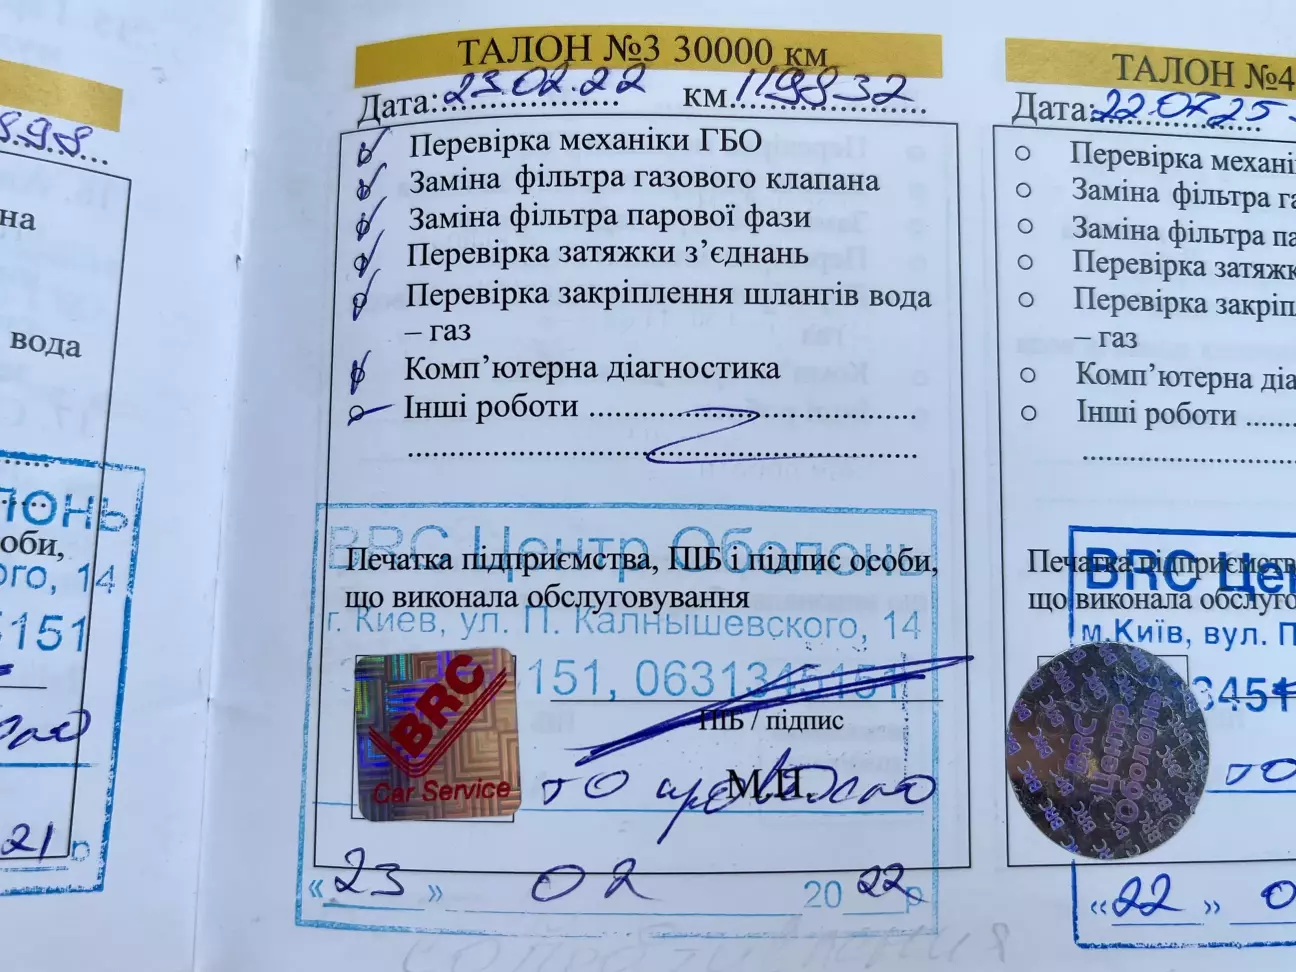 898
на
вода
лонь
оби,
ого, 14
5151
21 р
ТАЛОН №3 30000 км
Дата: 23.02.22 км 119832
Перевірка механіки ГБО
Заміна фільтра газового клапана
Заміна фільтра парової фази
Перевірка затяжки з’єднань
Перевірка закріплення шлангів вода
– газ
Комп’ютерна діагностика
Інші роботи
BRC Центр Оболонь
Печатка підприємства, ПІБ і підпис особи,
що виконала обслуговування
г. Киев, ул. П. Калнышевского, 14
151, 0631345151
ПІБ / підпис
BRC
Car Service
М.П.
ТО проведено
« 23 » 02 20 22 р
ТАЛОН №4
Дата: 22.07.25
Перевірка механі
Заміна фільтра га
Заміна фільтра па
Перевірка затяжк
Перевірка закріпл
– газ
Комп’ютерна діа
Інші роботи
BRC Цен
Печатка підприємств
що виконала обслуго
м.Київ, вул. П
3451
BRC
Центр
Оболонь
ТО
« 22 » 0